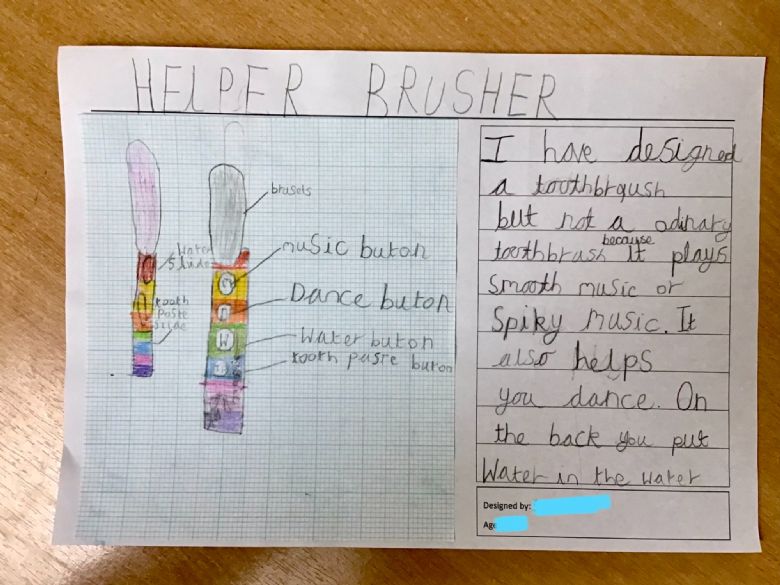 HElPER BRUSHER
brusels
Water
Slide
music buton
tooth
Paste
slide
Dance buton
Water buton
tooth paste buton
M
D
W
I have designed
a toothbrqush
but not a odinary
because
toothbrash it plays
smooth music or
Spiky music. It
also helps
you dance. On
the back you put
Water in the water
Designed by:
Age